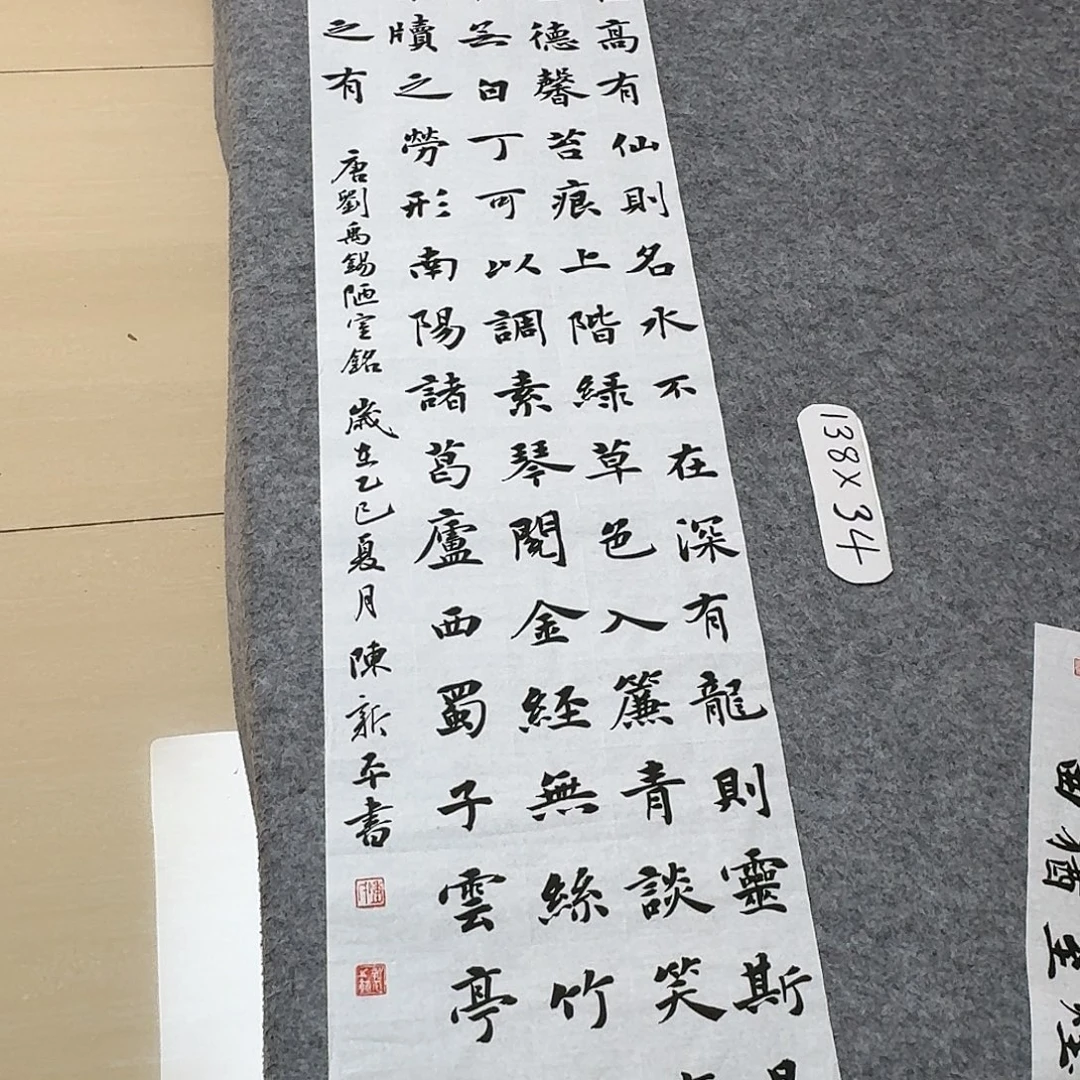 高有仙則名水不在深有龍則靈斯
德馨苔痕上階綠草色入簾青談笑
無白丁可以調素琴閱金經無絲竹
牘之勞形南陽諸葛廬西蜀子雲亭
之有 唐劉禹錫陋室銘 歲在乙巳夏月 陳新平書
138X34